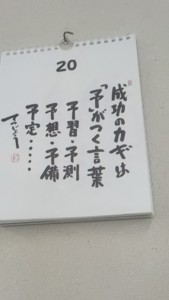 20
成功のカギは
「予」がつく言葉
予習・予測
予想・予備
予定・・・・・